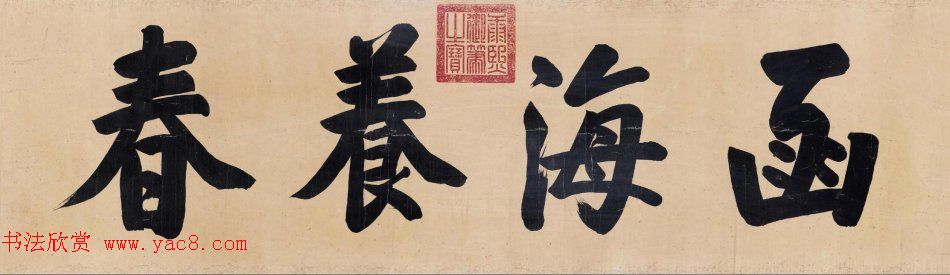 函海養春
康熙御筆之寶
书法欣赏 www.yac8.com